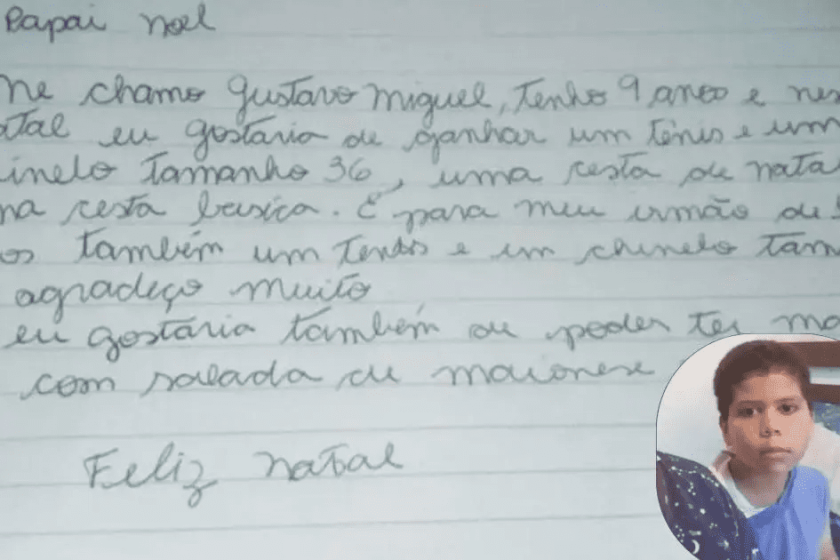 Papai noel
me chamo Gustavo Miguel, tenho 9 anos e nes
atal eu gostaria de ganhar um tênis e um
inelo tamanho 36, uma cesta de nata
ma cesta basica. E para meu irmão de
os também um tenis e um chinelo tam
agradeço muito
eu gostaria também de poder ter ma
com salada de maionese
Feliz natal